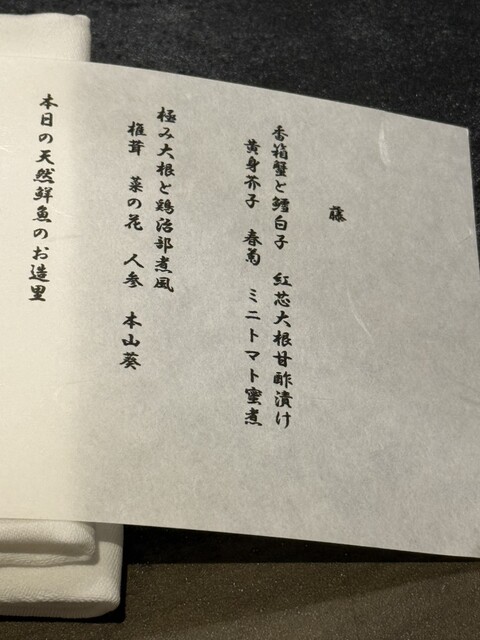 藤
香箱蟹と鱈白子 紅芯大根甘酢漬け
黄身芥子 春菊 ミニトマト蜜煮
極み大根と鶏治部煮風
椎茸 菜の花 人参 本山葵
本日の天然鮮魚のお造里